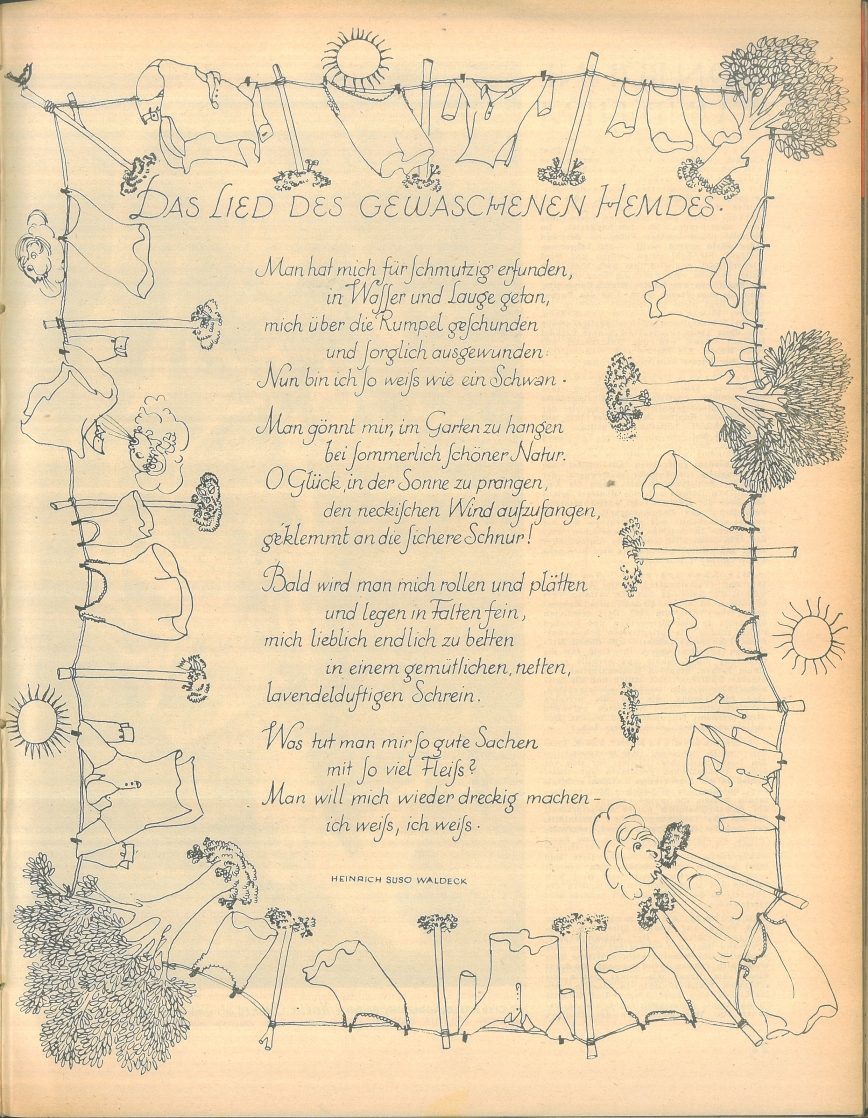 DAS LIED DES GEWASCHENEN HEMDES.
Man hat mich für ſchmutzig erfunden,
in Waſſer und Lauge getan,
mich über die Rumpel geſchunden
und ſorglich ausgewunden:
Nun bin ich ſo weiſs wie ein Schwan.
Man gönnt mir, im Garten zu hangen
bei ſommerlich ſchöner Natur.
O Glück, in der Sonne zu prangen,
den neckiſchen Wind aufzufangen,
geklemmt an die ſichere Schnur!
Bald wird man mich rollen und plätten
und legen in Falten fein,
mich lieblich endlich zu betten
in einem gemütlichen, netten,
lavendelduftigen Schrein.
Was tut man mir ſo gute Sachen
mit ſo viel Fleiſs?
Man will mich wieder dreckig machen –
ich weiſs, ich weiſs.
HEINRICH SUSO WALDECK